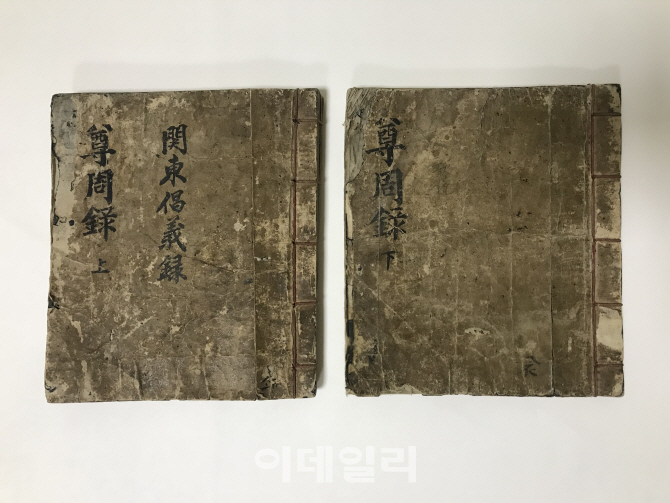 尊周錄 上
關東倡義録
尊周錄 下
이데일리